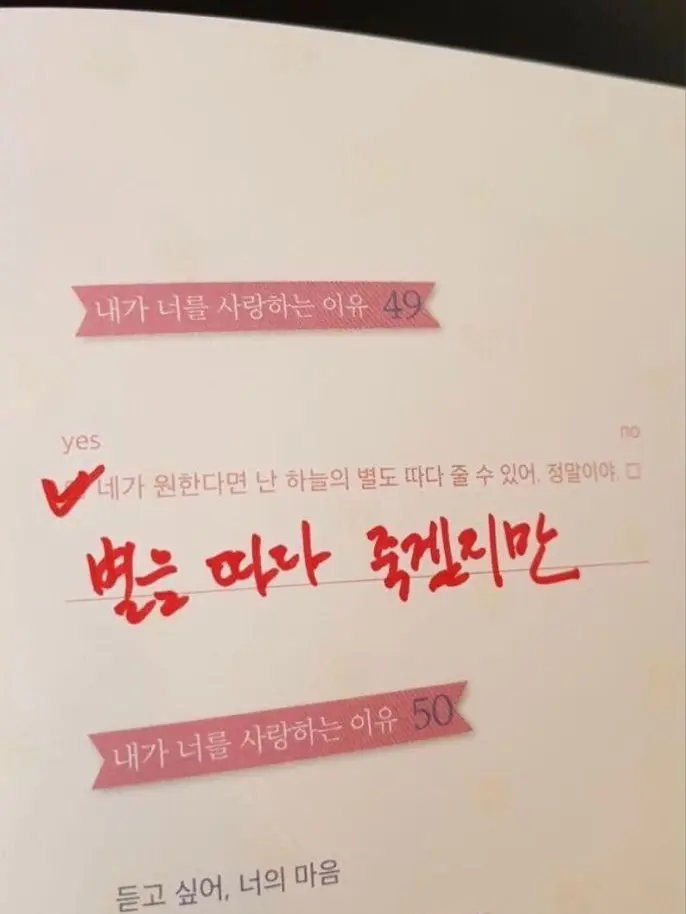 내가 너를 사랑하는 이유 49
yes
no
네가 원한다면 난 하늘의 별도 따다 줄 수 있어. 정말이야.
별은 따다 죽겠지만
내가 너를 사랑하는 이유 50
듣고 싶어, 너의 마음